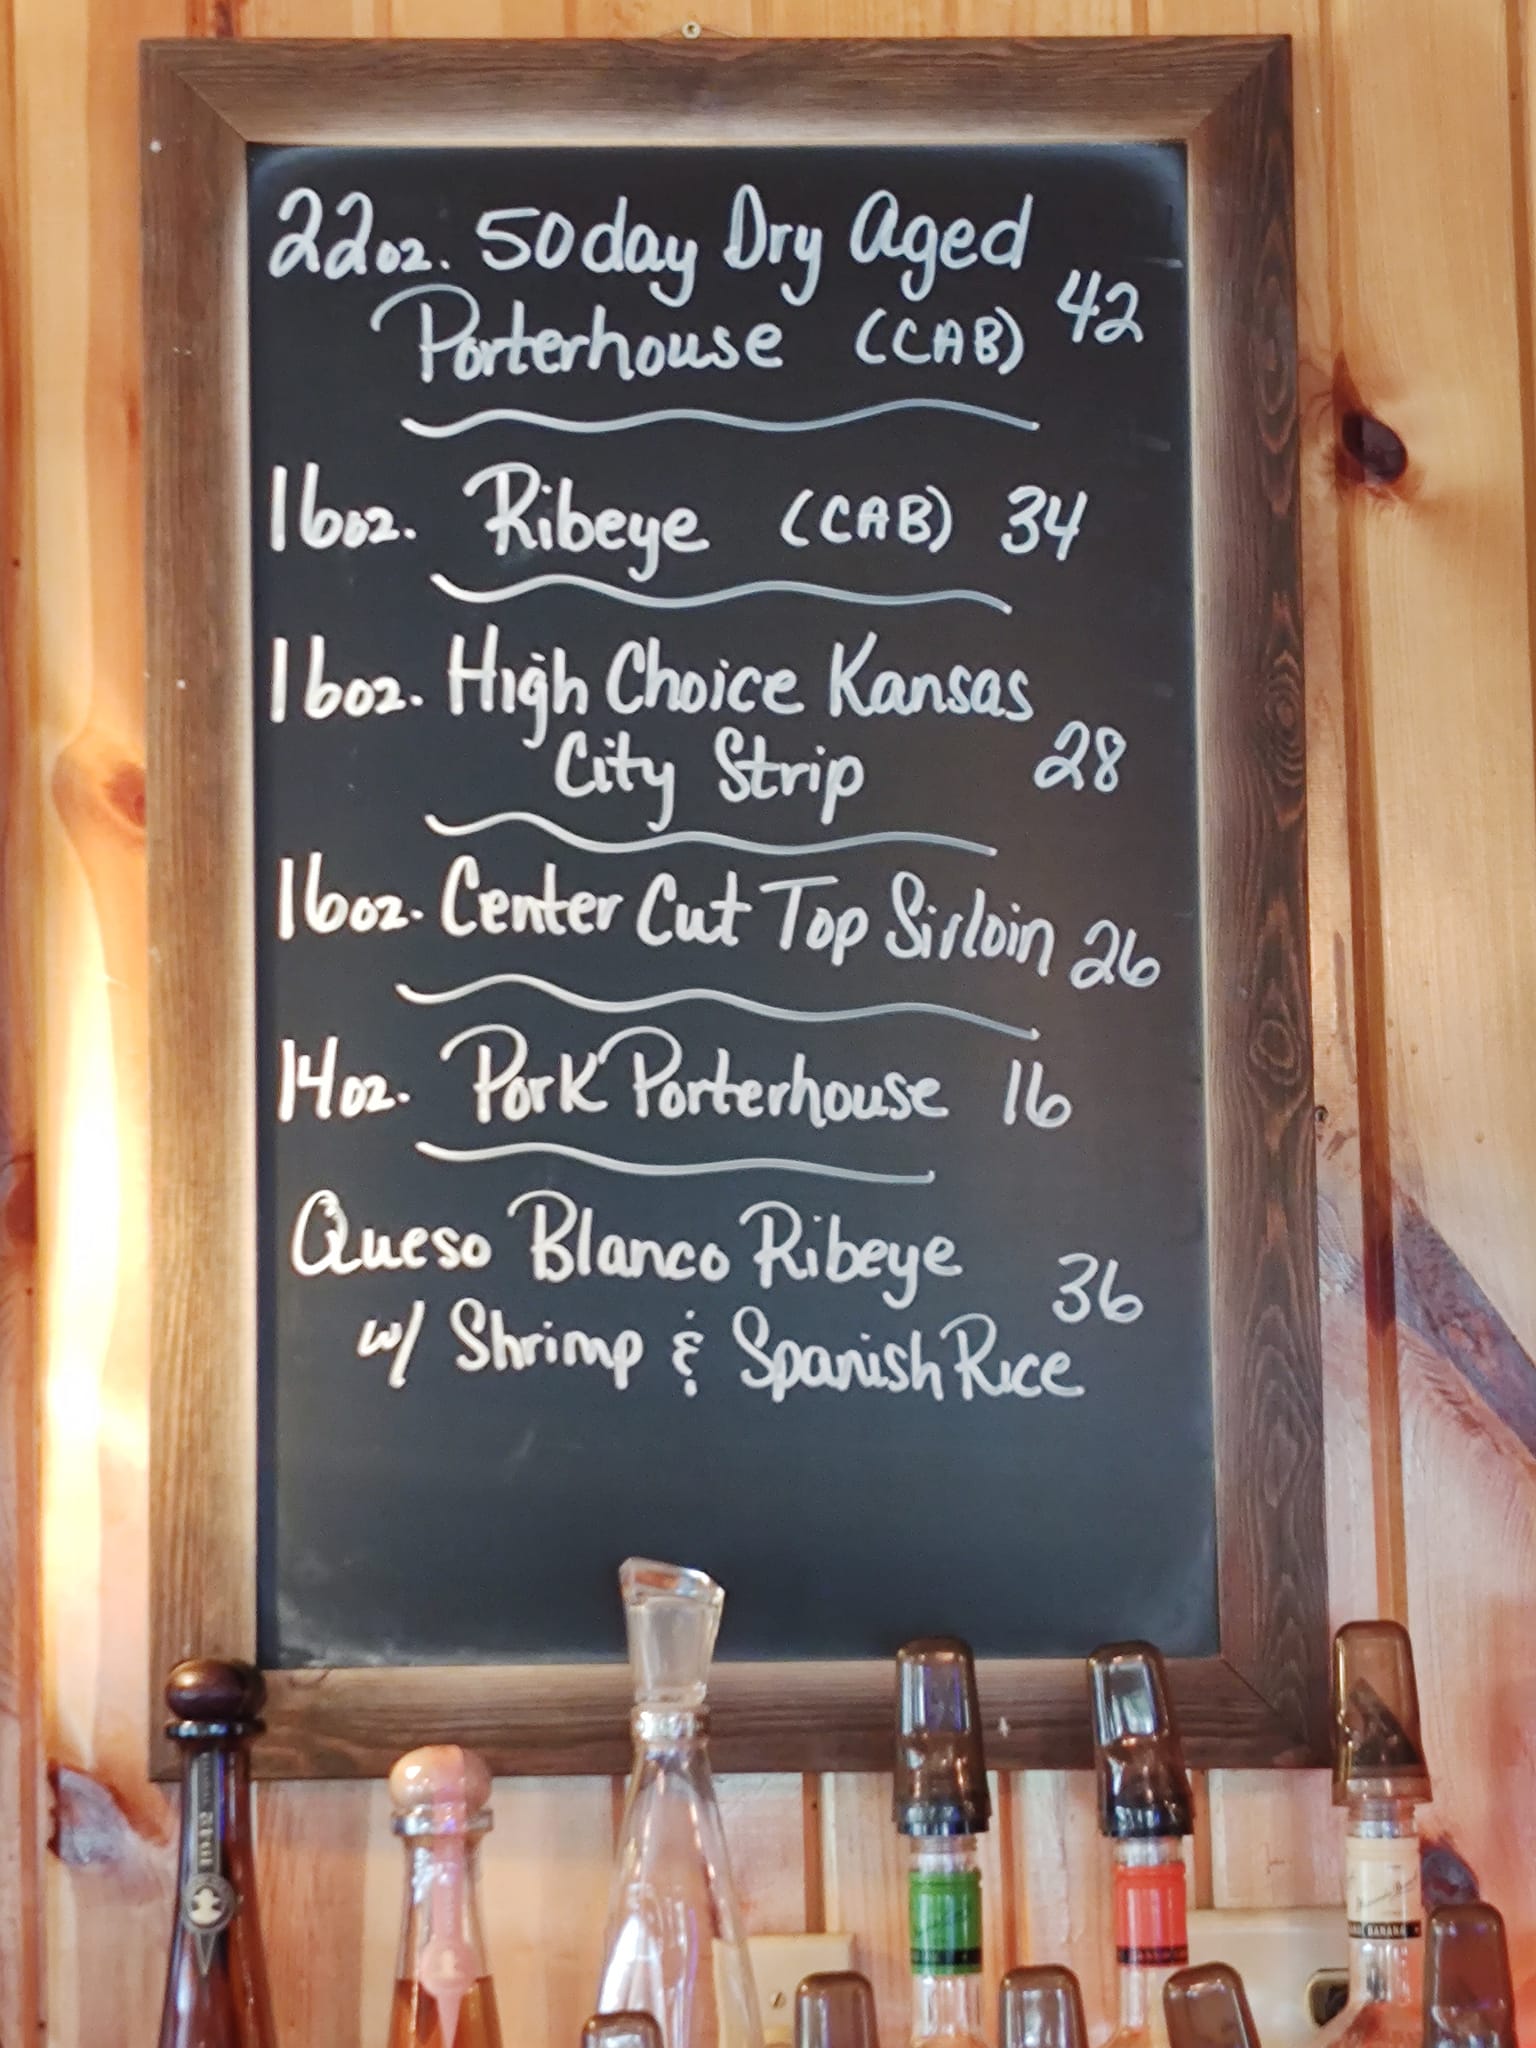 22oz. 50 day Dry Aged
Porterhouse (CAB) 42
16oz. Ribeye (CAB) 34
16oz. High Choice Kansas
City Strip 28
16oz. Center Cut Top Sirloin 26
14oz. Pork Porterhouse 16
Queso Blanco Ribeye 36
w/ Shrimp & Spanish Rice
1942
BANANA